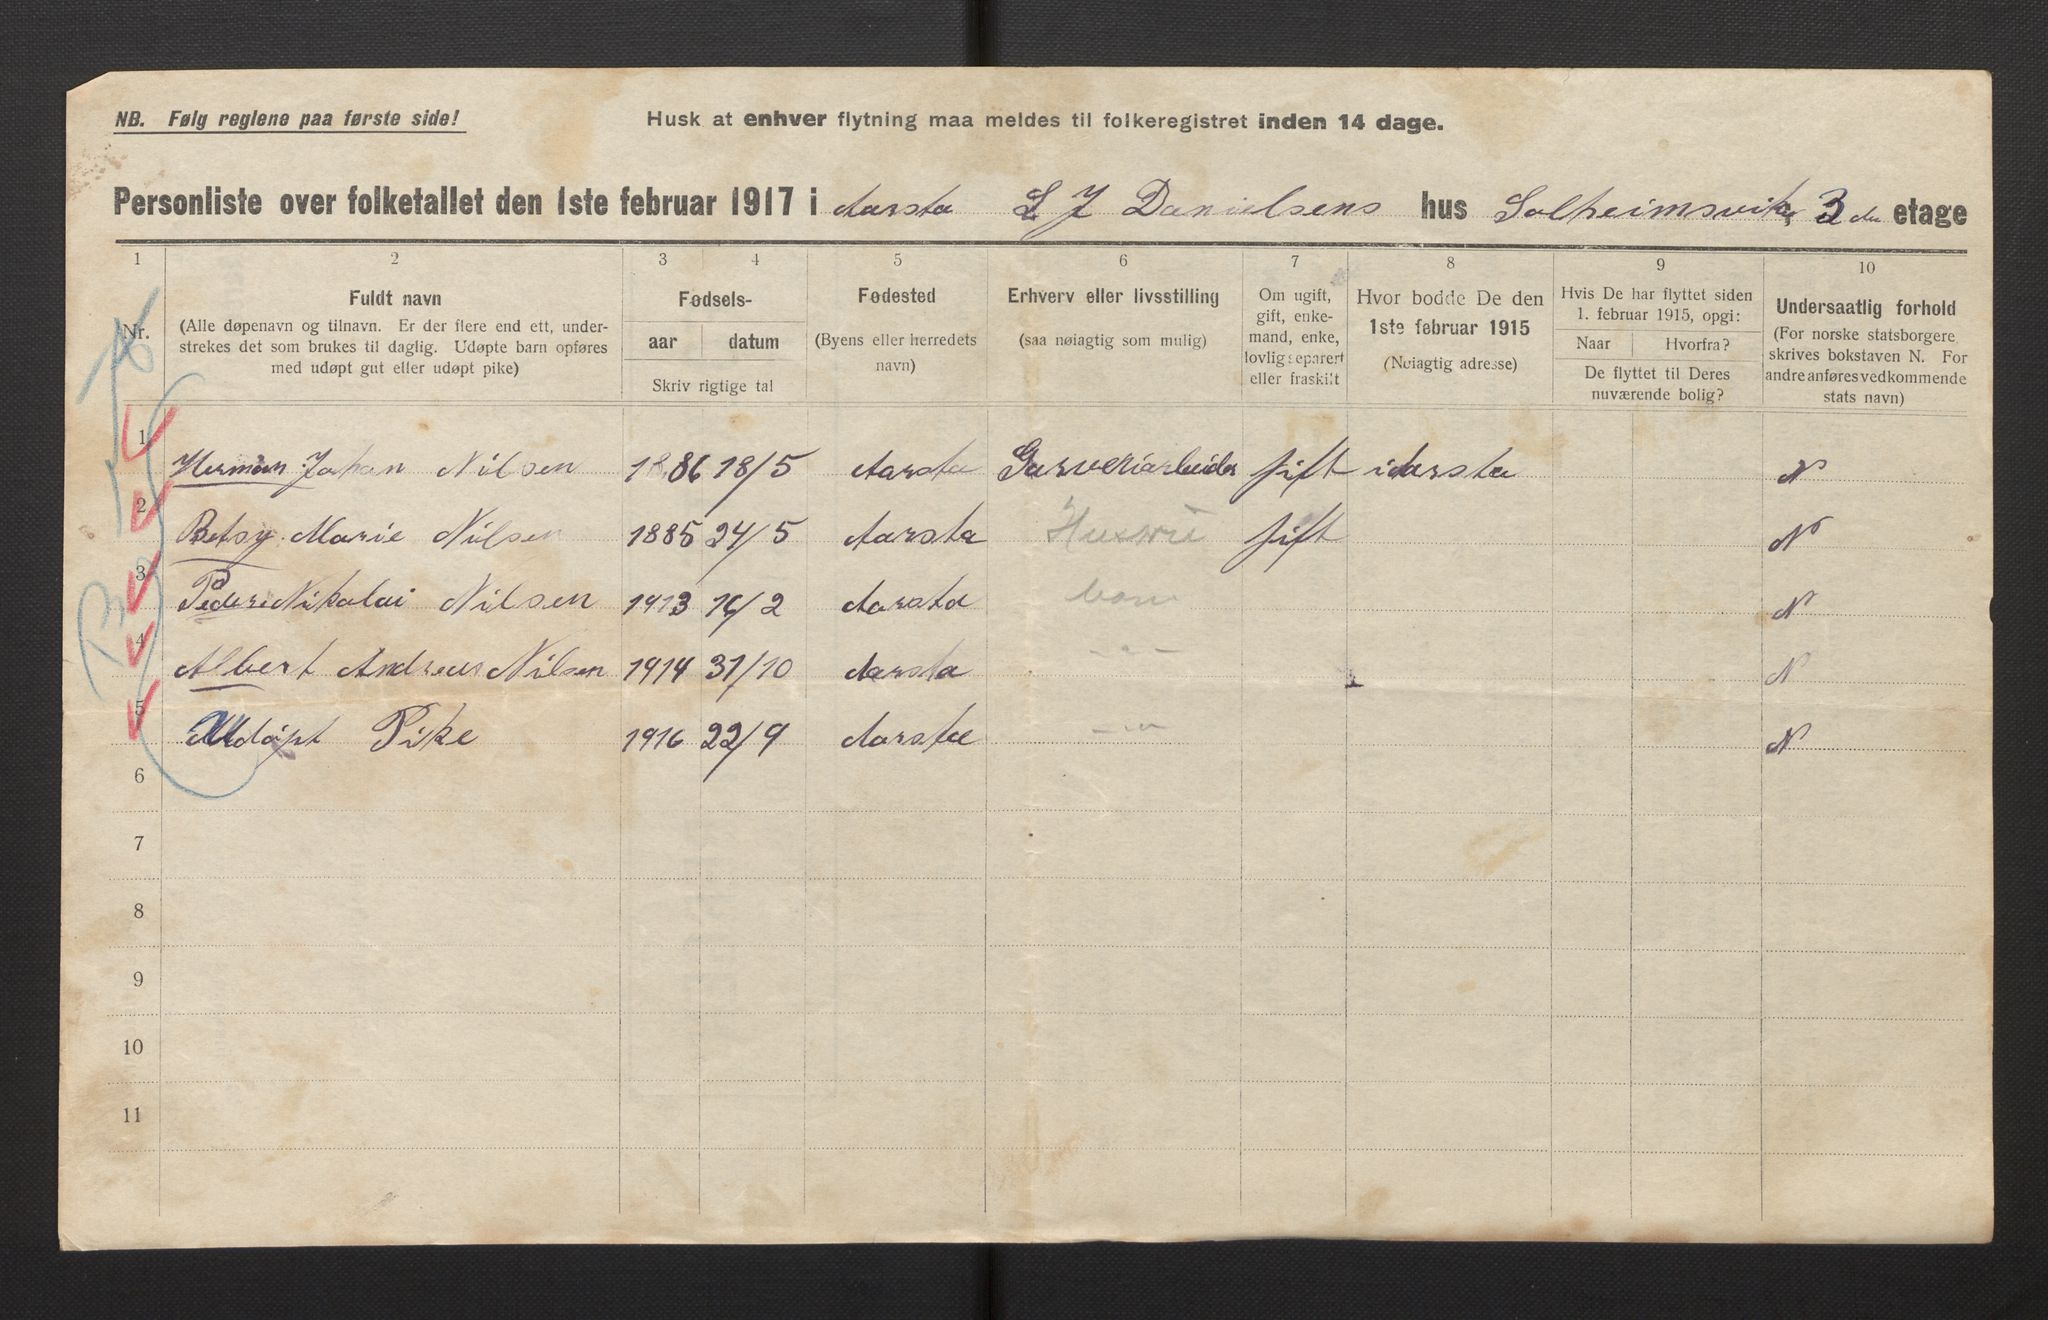 NB. Følg reglene paa første side! Husk at enhver flytning maa meldes til folkeregistret inden 14 dage.
Personliste over folketallet den 1ste februar 1917 i Aarsta L J Danielsens hus Solheimsvik, 3 die etage
1 2 3 4 5 6 7 8 9 10
Nr.
Fuldt navn
(Alle døpenavn og tilnavn. Er der flere end ett, under-
strekes det som brukes til daglig. Udøpte barn opføres
med udøpt gut eller udøpt pike)
Fødsels-
aar datum
Skriv rigtige tal
Fødested
(Byens eller herredets
navn)
Erhverv eller livsstilling
(saa nøiagtig som mulig)
Om ugift,
gift, enke-
mand, enke,
lovlig separert
eller fraskilt
Hvor bodde De den
1ste februar 1915
(Nøiagtig adresse)
Hvis De har flyttet siden
1. februar 1915, opgi:
Naar Hvorfra?
De flyttet til Deres
nuværende bolig?
Undersaatlig forhold
(For norske statsborgere
skrives bokstaven N. For
andre anføres vedkommende
stats navn)
1 Herman Johan Nilsen 1886 18/5 Aarsta Garveriarbeider gift i Aarsta N
2 Betsy Marie Nilsen 1885 24/5 Aarsta Husmor gift N
3 Peder Nikolai Nilsen 1913 16/2 Aarsta barn N
4 Albert Andreas Nilsen 1914 31/10 Aarsta -"- N
5 Udøpt Pike 1916 22/9 Aarsta -"- N
6
7
8
9
10
11